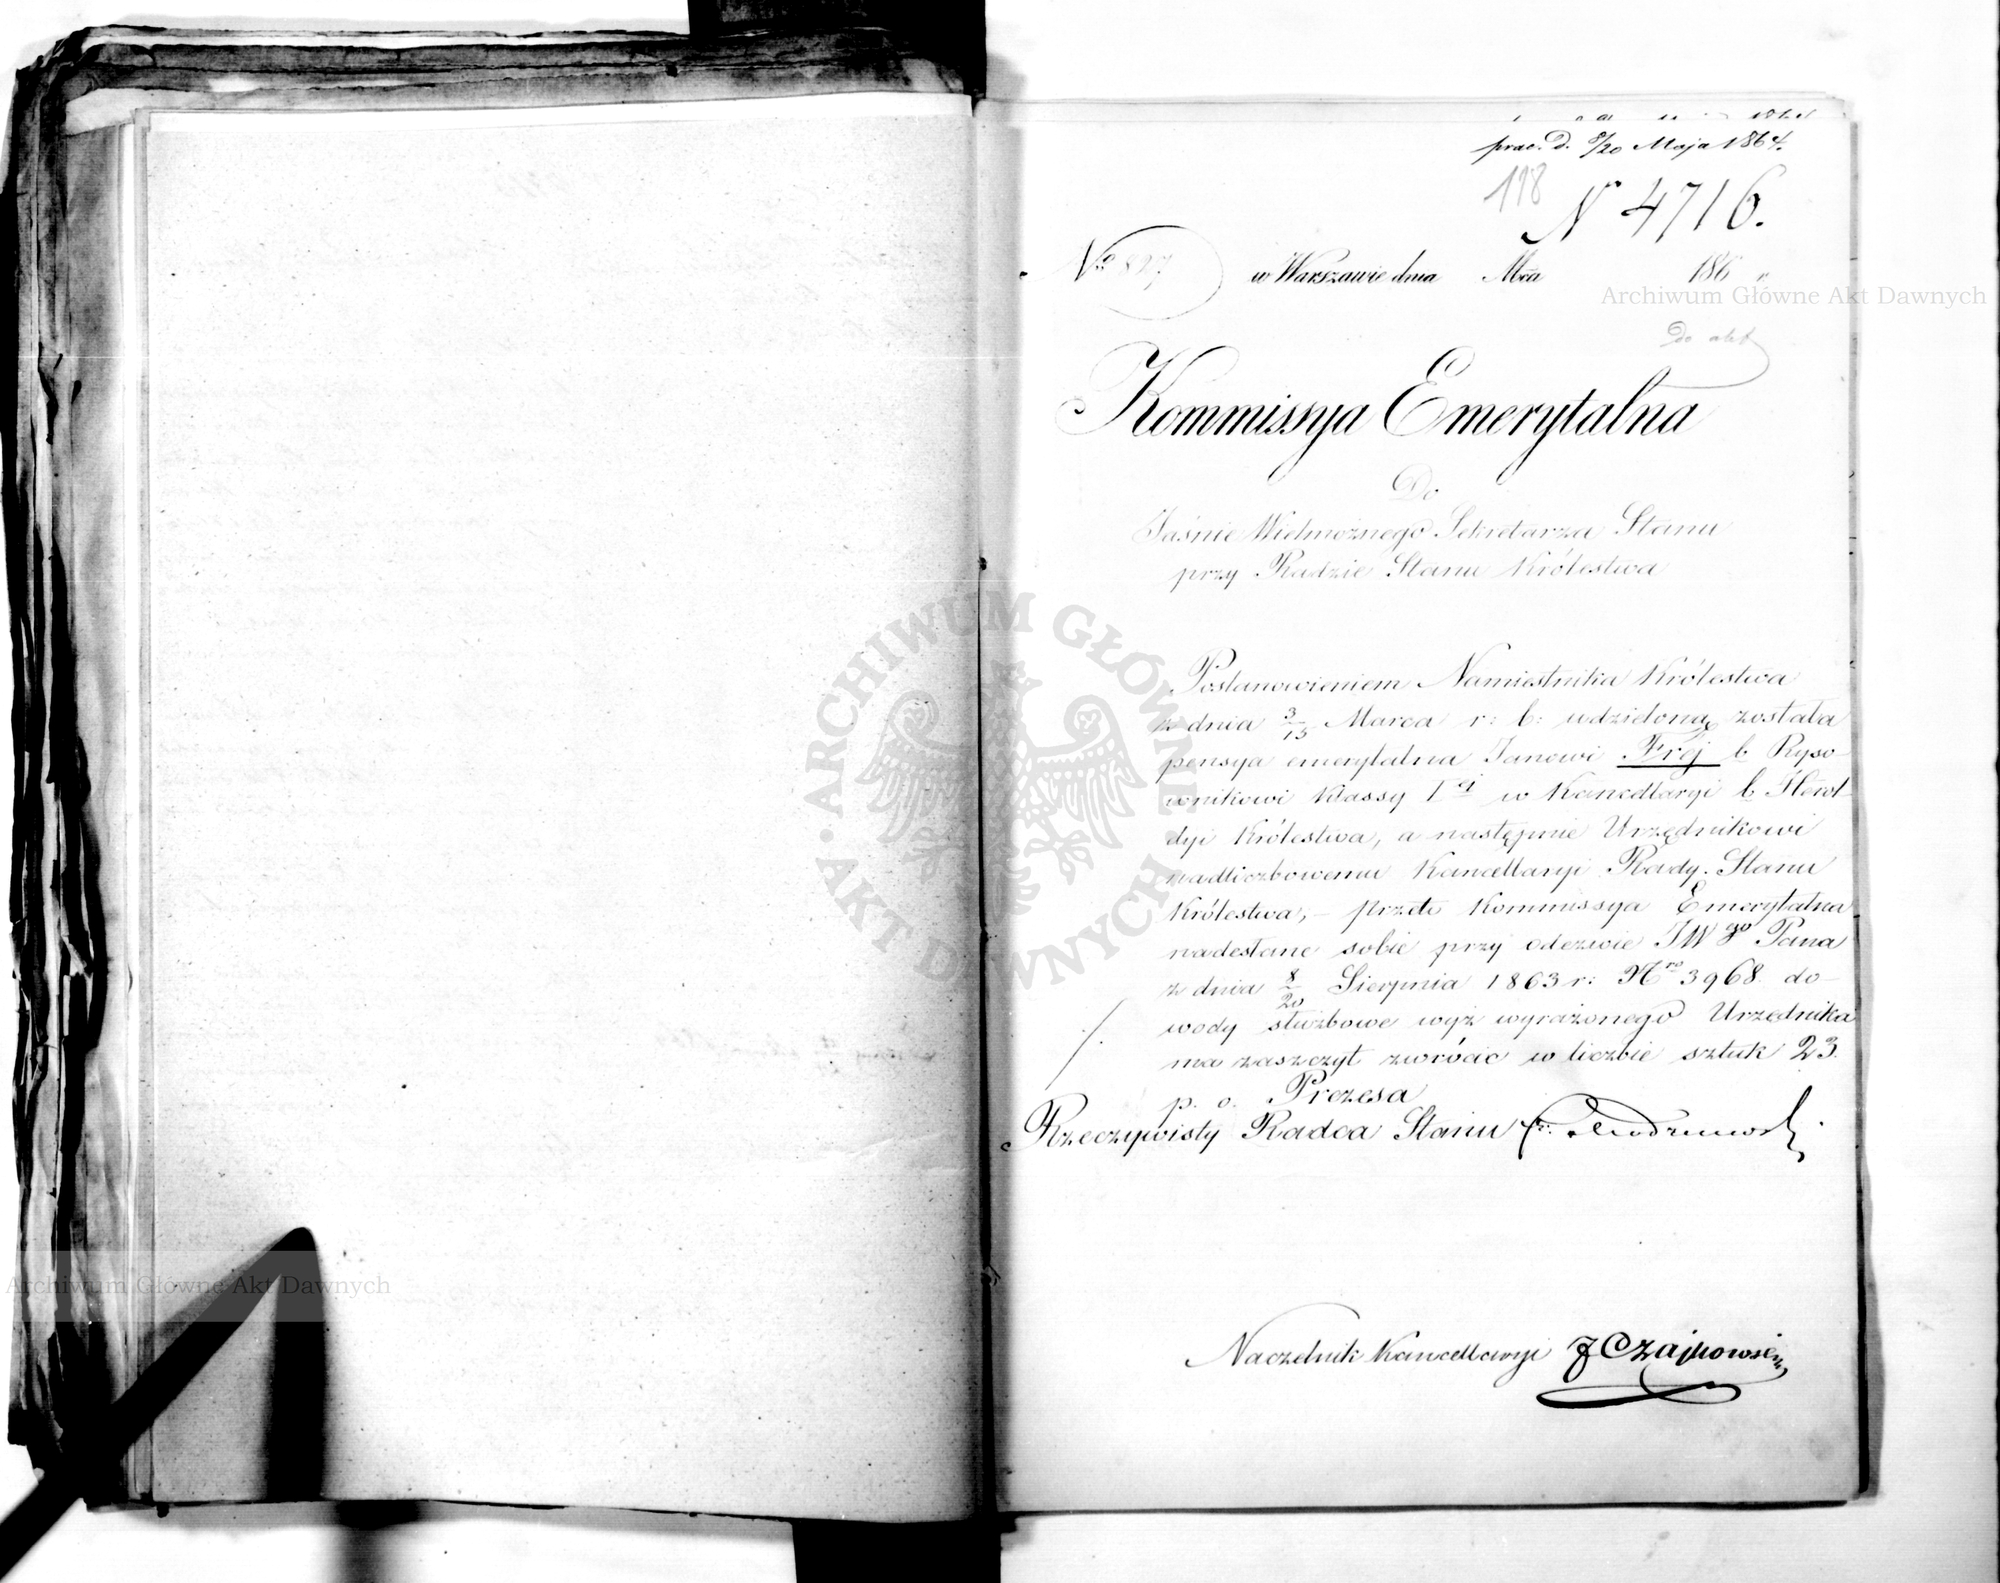 prac. D. 8/20 Maja 1864.
118
N 4716.
No 827
w Warszawie dnia Mca 186 r
Do akt
Kommissya Emerytalna
Do
Jaśnie Wielmożnego Sekretarza Stanu
przy Radzie Stanu Królestwa
Postanowieniem Namiestnika Królestwa
z dnia 3/15 Marca r: b: udzieloną została
pensya emerytalna Janowi Frej b Ryso-
wnikowi Klassy I ej w Kancellaryi b Herol-
dyi Królestwa, a następnie Urzędnikowi
nadliczbowemu Kancellaryi Rady Stanu
Królestwa, – przeto Kommissya Emerytalna
nadesłane sobie przy odezwie JW go Pana
z dnia 8/20 Sierpnia 1863 r: Nro 3968 do-
wody służbowe wyż wyrażonego Urzędnika
ma zaszczyt zwrócić w liczbie sztuk 23.
p. o. Prezesa
Rzeczywisty Radca Stanu
Naczelnik Kancellaryi J Czajkowski
Archiwum Główne Akt Dawnych
Archiwum Główne Akt Dawnych
ARCHIWUM GŁÓWNE AKT DAWNYCH